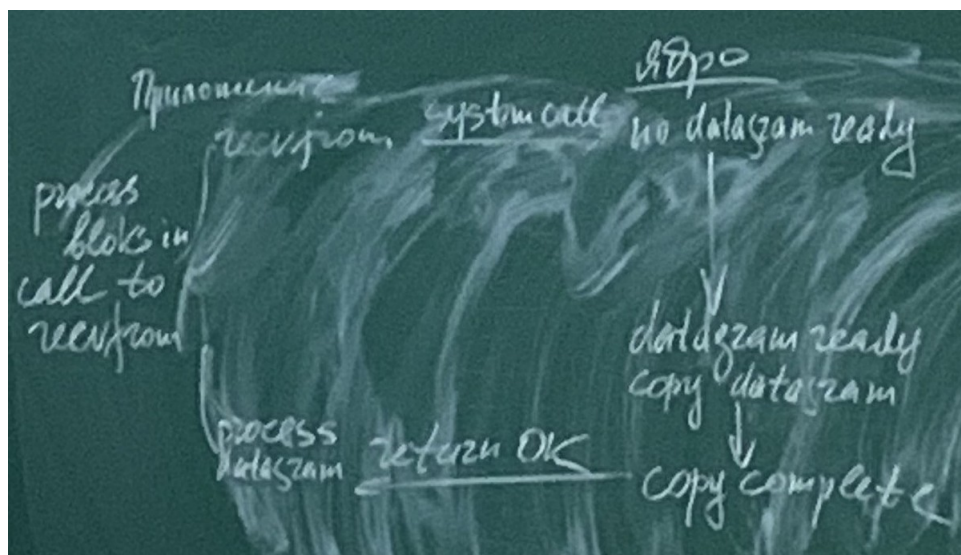 Приложение
Ядро
recvfrom system call no datagram ready
process
bloks in
call to
recvfrom
datagram ready
copy datagram
process
datagram
return OK
copy complete